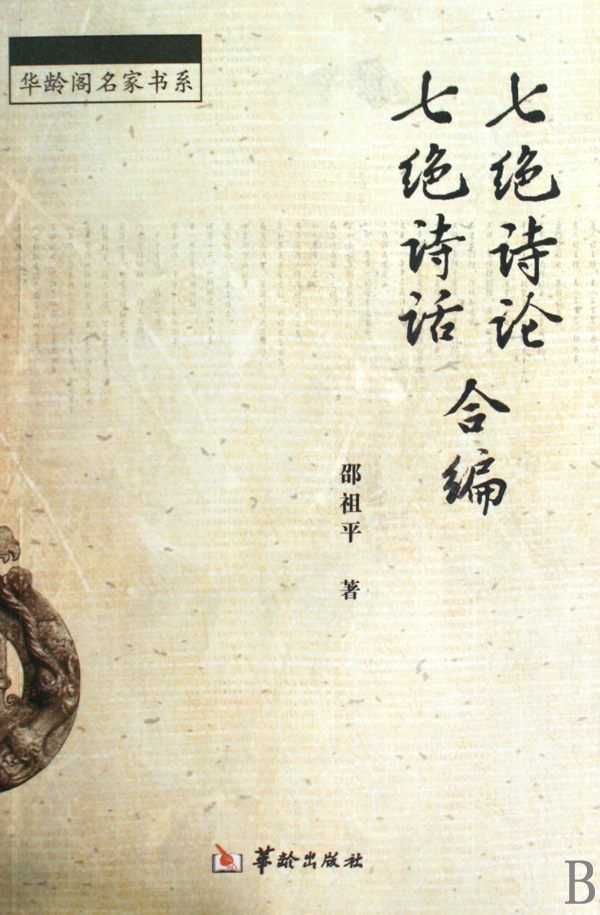 华龄阁名家书系
七绝诗论
七绝诗话
合编
邵祖平 著
華龄出版社
B